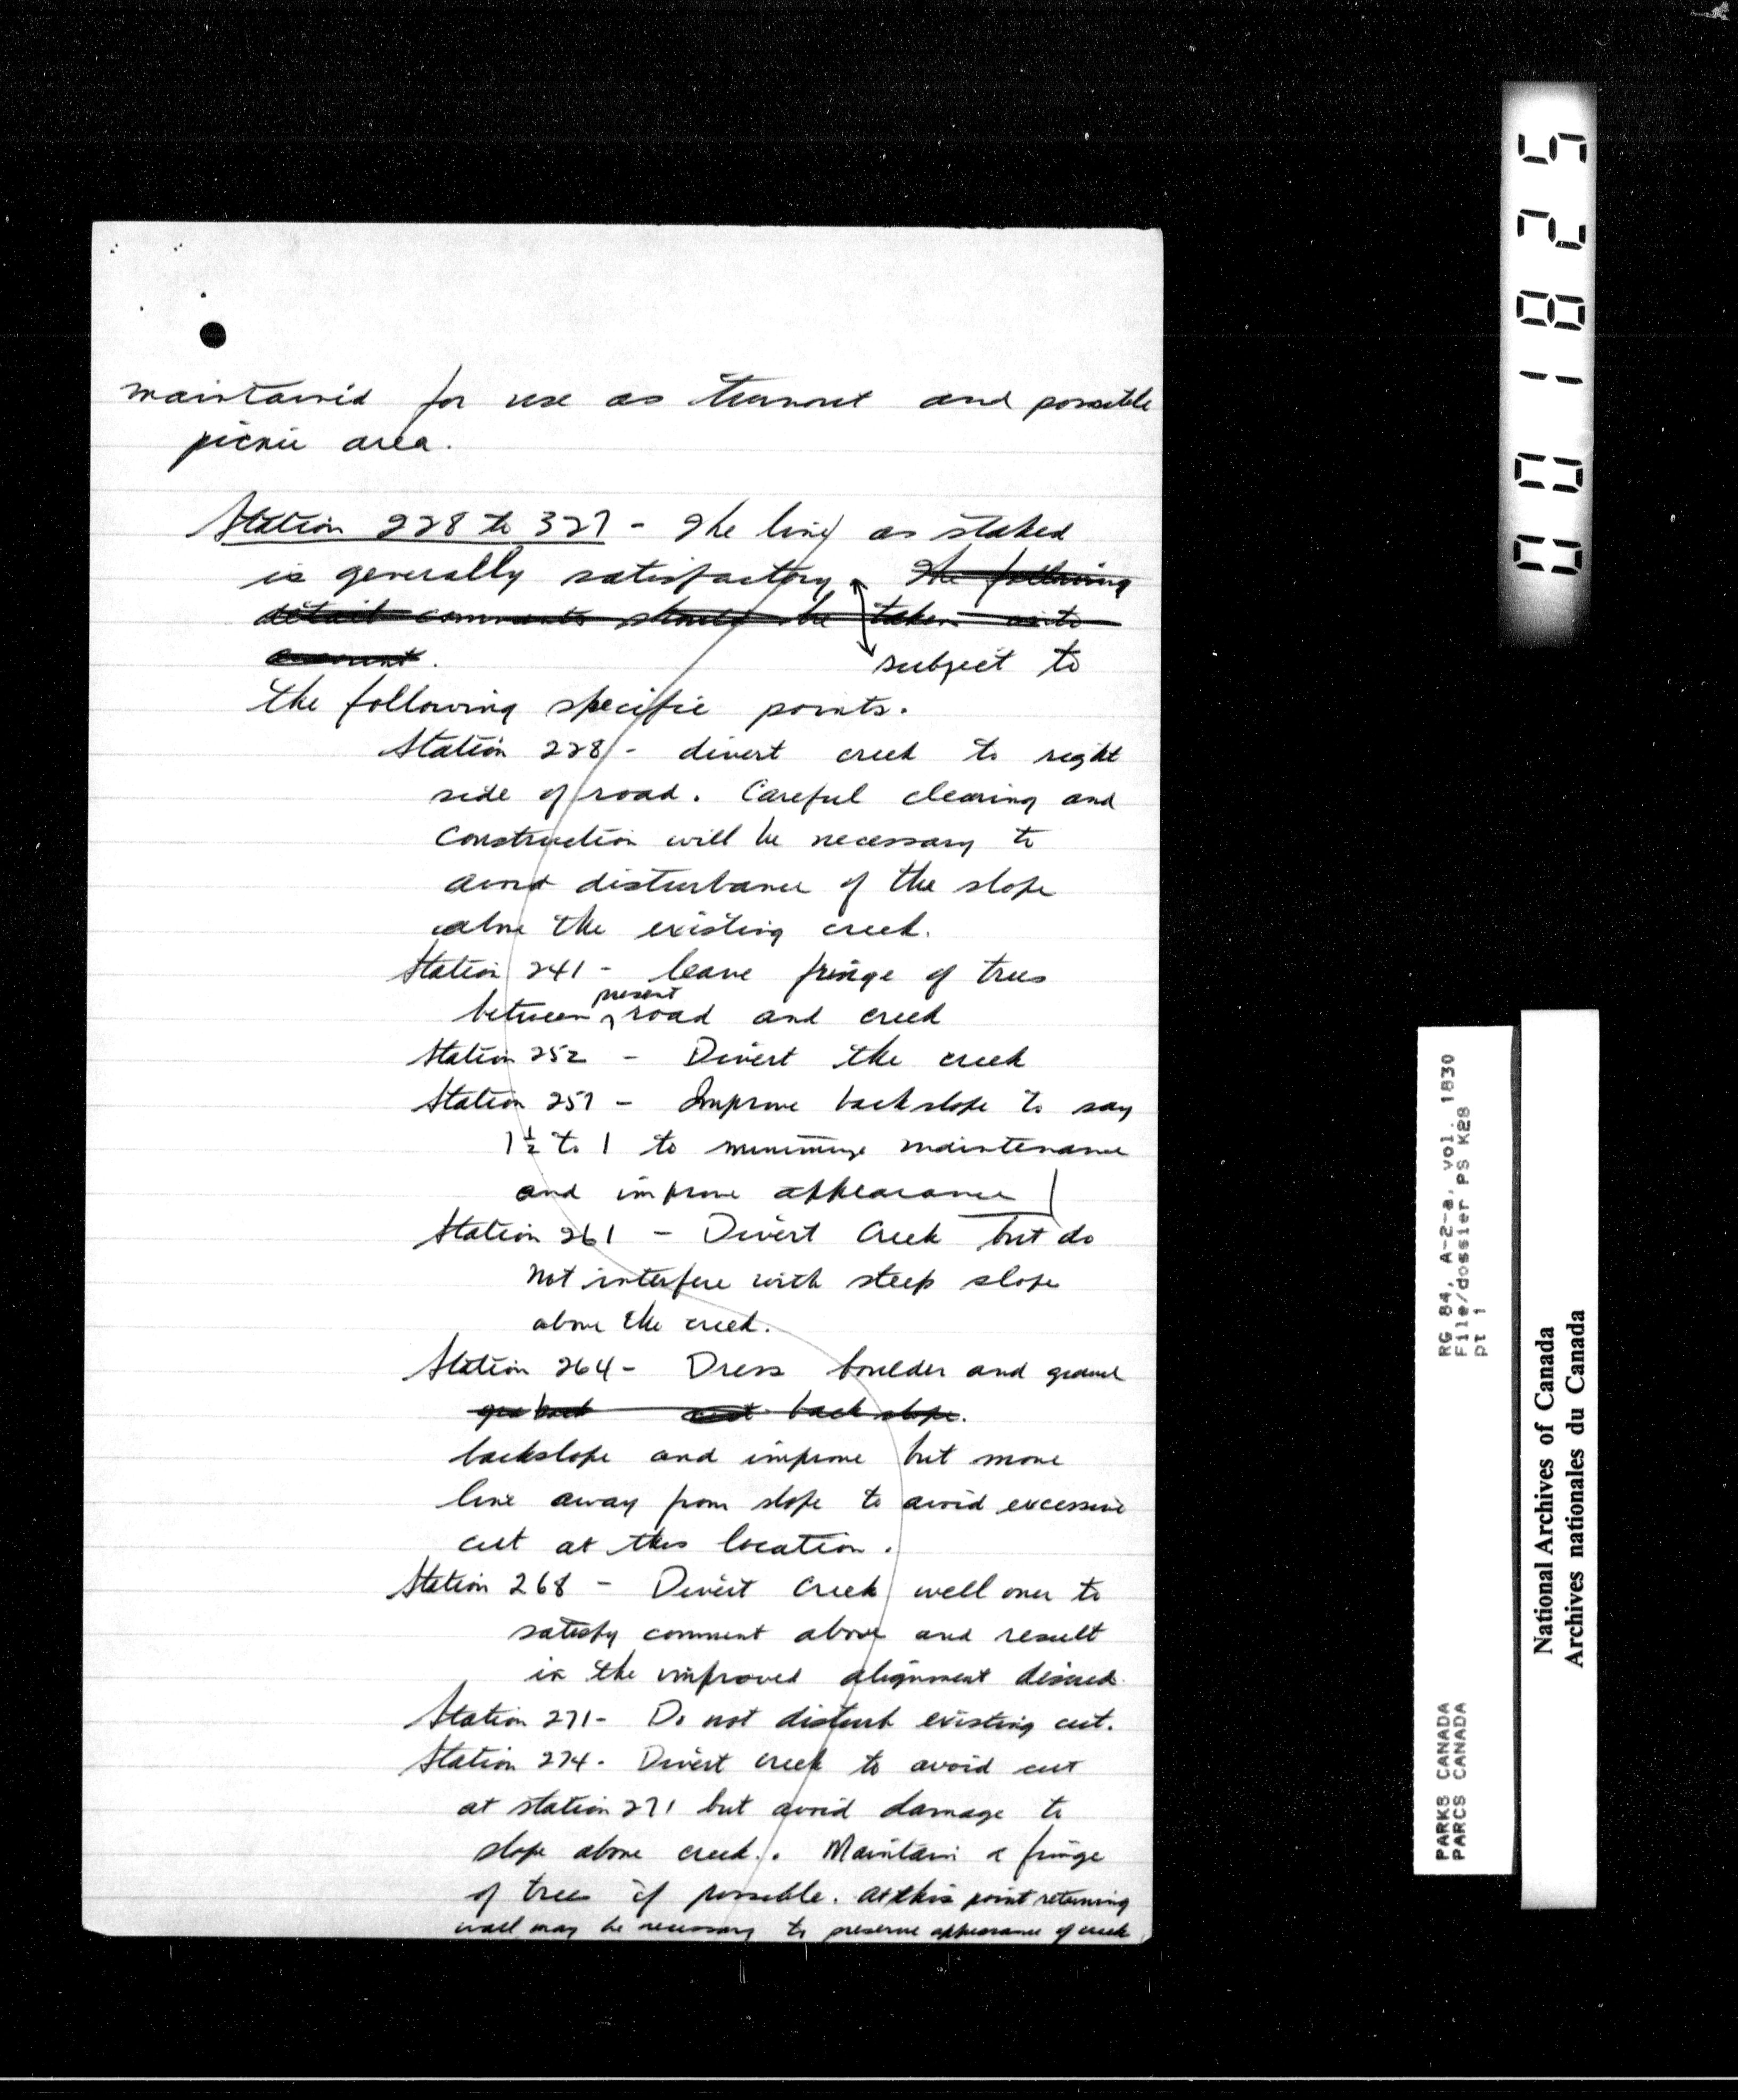 maintained for use as turnout and possible
picnic area.
Station 228 to 327 - The line as staked
is generally satisfactory. The following
detail comments should be taken into
account.
subject to
the following specific points.
Station 228 - divert creek to right
side of road. Careful clearing and
construction will be necessary to
avoid disturbance of the slope
above the existing creek.
Station 241 - leave fringe of trees
between present road and creek
Station 252 - Divert the creek
Station 257 - Improve backslope to say
1½ to 1 to minimize maintenance
and improve appearance
Station 261 - Divert Creek but do
not interfere with steep slope
above the creek.
Station 264 - Dress boulder and gravel
back slope.
backslope and improve but move
line away from slope to avoid excessive
cut at this location.
Station 268 - Divert Creek well over to
satisfy comment above and result
in the improved alignment desired.
Station 271 - Do not disturb existing cut.
Station 274 - Divert creek to avoid cut
at station 271 but avoid damage to
slope above creek. Maintain a fringe
of trees if possible. At this point retaining
wall may be necessary to preserve appearance of creek
001825
RG 84, A-2-a, vol. 1830
File/dossier PS K28
pt 1
PARKS CANADA
PARCS CANADA
National Archives of Canada
Archives nationales du Canada